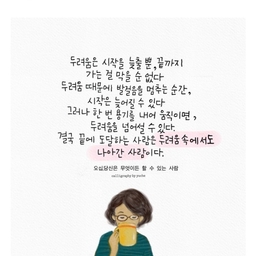 두려움은 시작을 늦출 뿐, 끝까지
가는 걸 막을 순 없다
두려움 때문에 발걸음을 멈추는 순간,
시작은 늦어질 수 있다
그러나 한 번 용기를 내어 움직이면,
두려움을 넘어설 수 있다.
결국 끝에 도달하는 사람은 두려움 속에서도
나아간 사람이다.
오십당신은 무엇이든 할 수 있는 사람